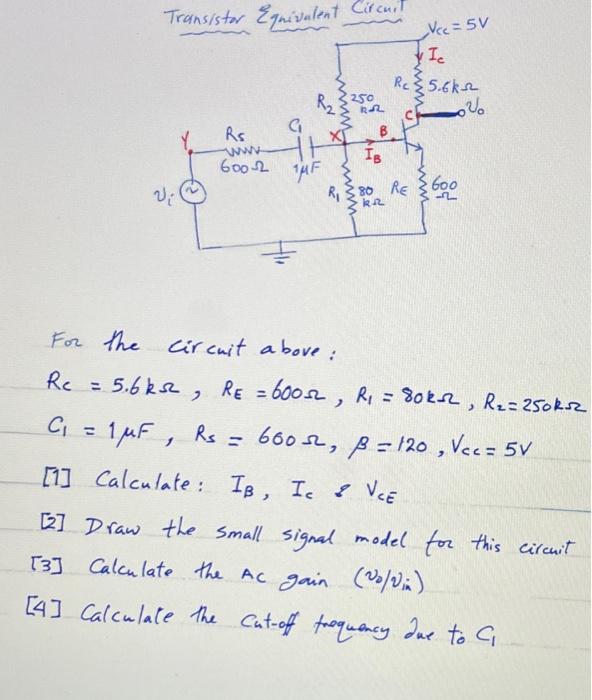 Transistor Equivalent Circuit
Vcc = 5V
Ic
Rc 5.6kΩ
R2 250 kΩ
C
Vo
Rs
C1
X
B
Y
600Ω
1μF
IB
Vi
R1 80 kΩ
RE 600 Ω
For the circuit above:
Rc = 5.6kΩ, RE = 600Ω, R1 = 80kΩ, R2 = 250kΩ
C1 = 1μF, Rs = 600Ω, β = 120, Vcc = 5V
[1] Calculate: IB, Ic & VCE
[2] Draw the small signal model for this circuit
[3] Calculate the AC gain (Vo/Vin)
[4] Calculate the Cut-off frequency due to C1